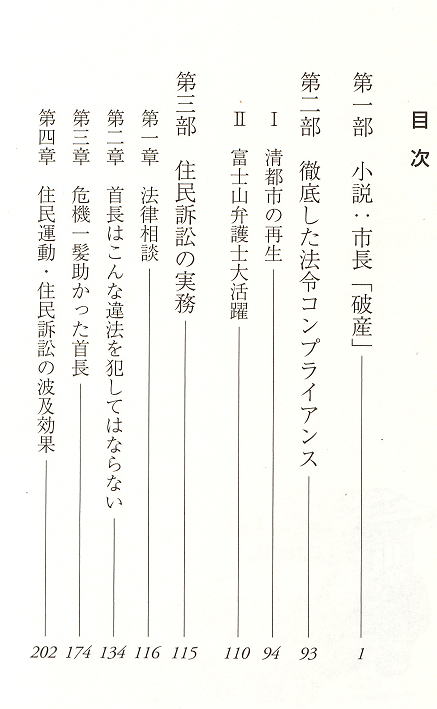 目次
第一部 小説：市長「破産」 1
第二部 徹底した法令コンプライアンス 93
Ⅰ 清都市の再生 94
Ⅱ 富士山弁護士大活躍 110
第三部 住民訴訟の実務 115
第一章 法律相談 116
第二章 首長はこんな違法を犯してはならない 134
第三章 危機一髪助かった首長 174
第四章 住民運動・住民訴訟の波及効果 202